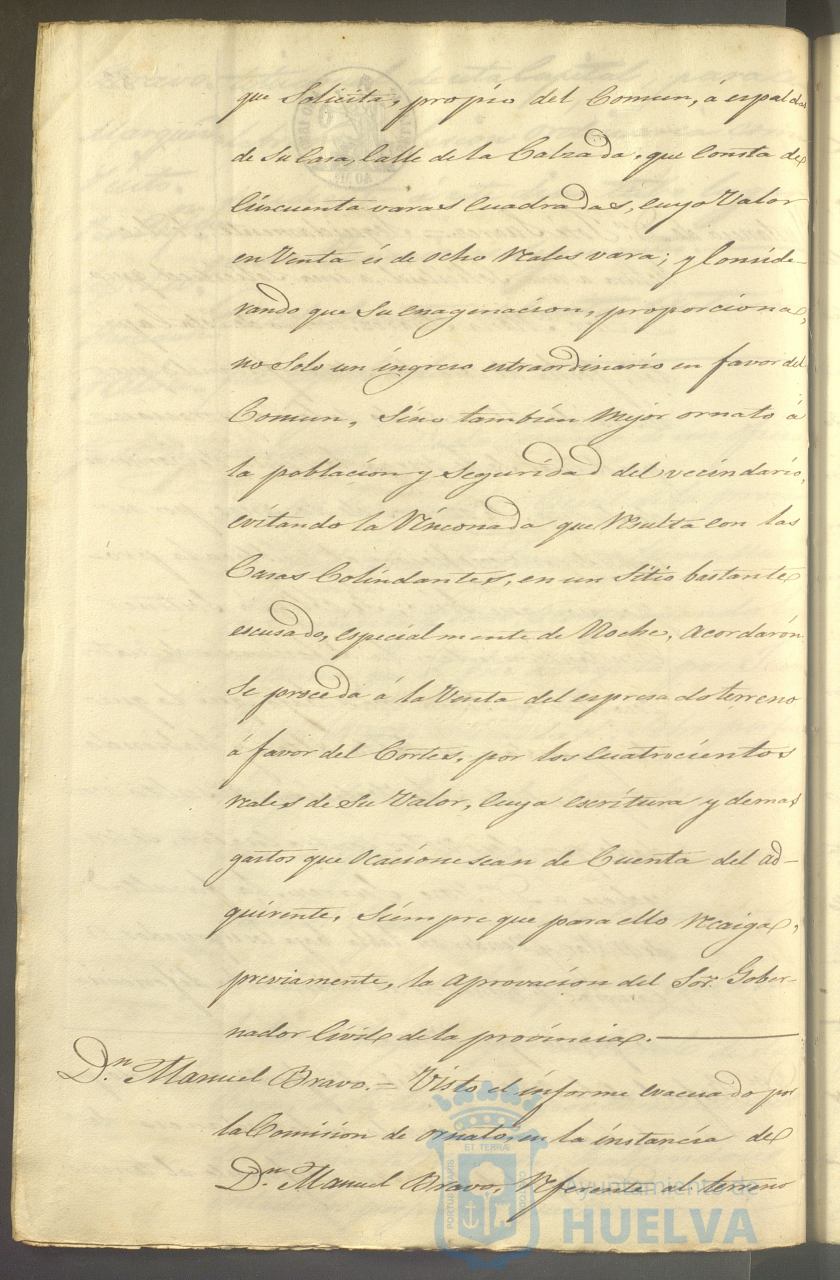 que Solicita, propio del Comun, á espaldas
de su Casa, Calle de la Calzada, que Consta de
Cincuenta varas Cuadradas, Cuyo Valor
en Venta és de ocho Reales vara; y Conside-
rando que Su enagenacion, proporciona,
no Solo un ingreso estraordinario en favor del
Comun, Sino tambien Mejor ornato á
la poblacion y Seguridad del vecindario,
evitando la Rinconada que Resulta con las
Casas Colindantes, en un Sitio bastante
escusado, especialmente de Noche, acordarón
Se proceda á la Venta del espresado terreno
á favor del Cortes, por los Cuatrocientos
reales de Su Valor, Cuya escritura y demas
gastos que ocacione sean de Cuenta del ad-
quirente, Siempre que para ello recaiga,
previamente, la aprovacion del Sor. Gober-
nador Civil de la provincia.
Dn. Manuel Bravo. = Visto el informe evacuado por
la Comision de ornato, en la instancia de
Dn. Manuel Bravo, Referente al terreno
ET TERRÆ
PORTUS MARIS
CUSTODIA
Ayuntamiento de
HUELVA